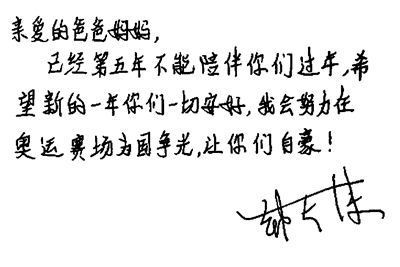 亲爱的爸爸妈妈,
已经第五年不能陪伴你们过年,希
望新的一年你们一切安好,我会努力在
奥运赛场为国争光,让你们自豪!